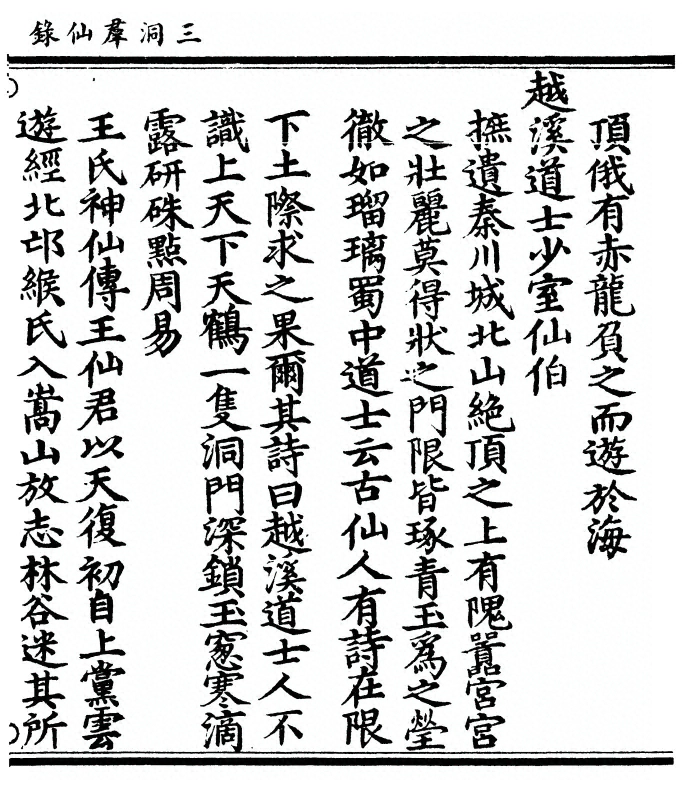 三洞羣仙錄
頂俄有赤龍負之而遊於海
越溪道士少室仙伯
摭遺秦川城北山絕頂之上有隗囂宮宮
之壯麗莫得狀之門限皆琢青玉爲之瑩
徹如瑠璃蜀中道士云古仙人有詩在限
下土際求之果爾其詩曰越溪道士人不
識上天下天鶴一隻洞門深鎖玉窻寒滴
露研硃點周易
王氏神仙傳王仙君以天復初自上黨雲
遊經北邙緱氏入嵩山放志林谷迷其所